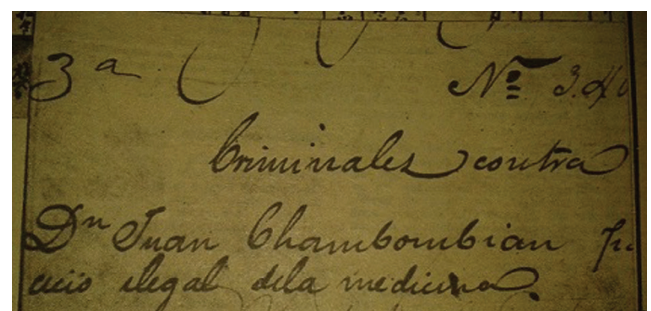 3ª Nº 3.40
Criminales contra
Dn Juan Chambombian
cicio ilegal dela medicina.